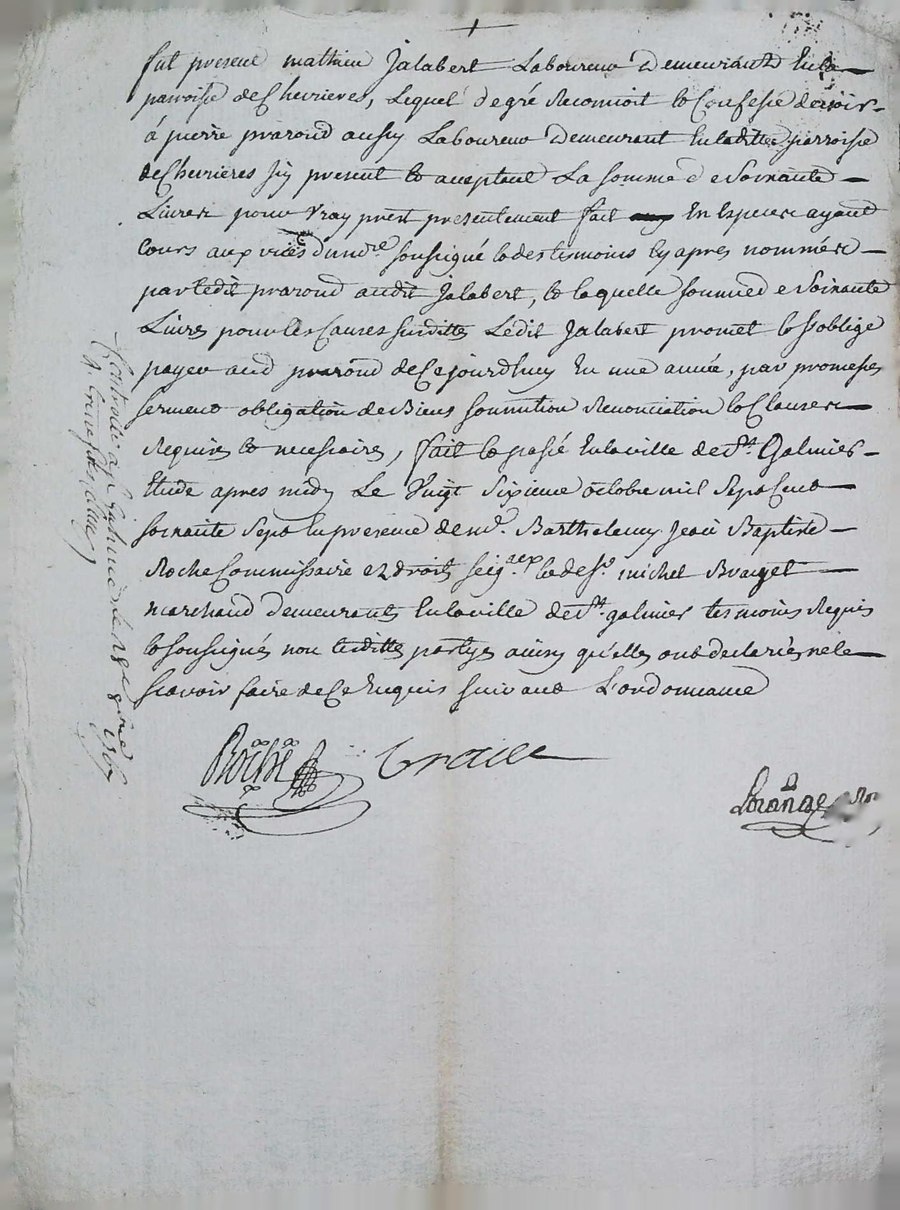 fut present mathieu Jalabert Laboureur Demeurant En la
parroise de Chevrieres, Lequel de gré Reconnoit et Confesse devoir
á pierre prarond aussy Laboureur Demeurant En laditte parroise
de Chevrières Icy present et aceptant La somme de soixante
Livres pour vray prest presentement fait En Especes ayant
Cours aux vües du nore soussigné et des temoins cy apres nommés
par ledit prarond audit Jalabert, et laquelle somme de soixante
Livres pour les Causes susdittes Ledit Jalabert promet et s'oblige
payer aud prarond de Ce jourdhuy En une année, par promesses
serment obligation de Biens soumition Renonciation et Clauses
Requises et necessaires, fait et passé En la ville de St. Galmier
Etude apres midy Le vingt sixieme octobre mil sept Cent
soixante sept En presence de mr. Barthelemy Jean Baptiste
Roche Commissaire ez droits seigaux et de sr michel
marchand demeurants En la ville de St. galmier temoins Requis
et soussignés non lesdittes partyes ainsy qu'elles ont declarées ne le
scavoir faire de Ce Enquis suivant L'ordonnance
Roche
Lorange
Controllé a St Galmier le 28e 8bre 1767